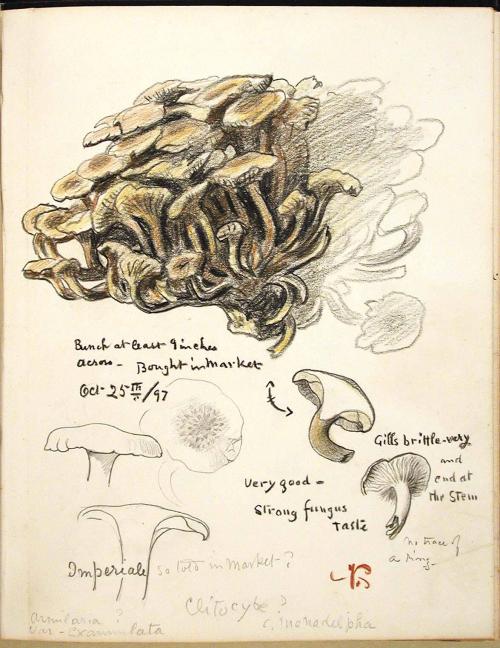 Bunch at least 9 inches
across - Bought in Market
Oct - 25th/97
Gills brittle - very
and
end at
the Stem
Very good -
Strong fungus
taste
no trace of
a ring -
Imperiale so told in market ?
Clitocybe ?
Armilaria ?
var - Exannulata
C. monadelpha